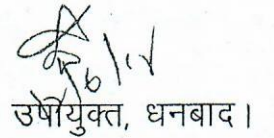 उषौयुक्त, धनबाद।